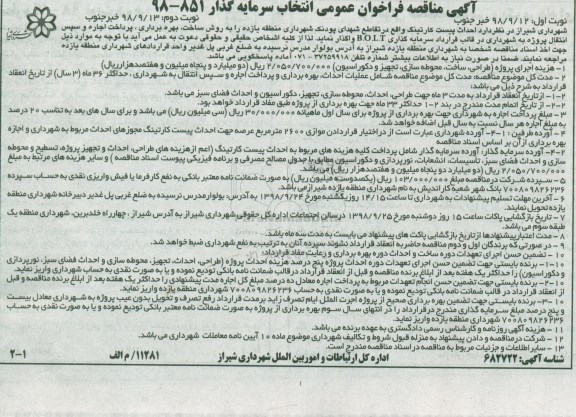 آگهی مناقصه فراخوان عمومی انتخاب سرمایه گذار ۸۵۱-۹۸
نوبت اول: ۹۸/۹/۱۲ خبر جنوب
نوبت دوم: ۹۸/۹/۱۳ خبرجنوب
شهرداری شیراز در نظردارد احداث پیست کارتینگ واقع در تقاطع شهدای پودنک شهرداری منطقه یازده را به روش ساخت، بهره برداری، پرداخت اجاره و سپس
انتقال پروژه به شهرداری در قالب قرارداد سرمایه گذاری B.O.L.T واگذار نماید. لذا از کلیه اشخاص حقیقی و حقوقی دعوت به عمل می آید با توجه به موارد ذیل
جهت اخذ اسناد مناقصه شخصا به شهرداری منطقه یازده شیراز به آدرس بولوار مدرس نرسیده به ضلع غربی پل غدیر واحد قراردادهای شهرداری منطقه یازده
مراجعه نمایند. ضمنا در صورت نیاز به اطلاعات بیشتر شماره تلفن ۳۷۲۵۹۹۹۸ - ۰۷۱ آماده پاسخگویی می باشد.
۱- هزینه اجرای پروژه (طراحی، ساخت، محوطه سازی، تجهیز و دکوراسیون) ۲/۰۵۰/۷۰۰/۰۰۰ ریال (دو میلیارد و پنجاه میلیون و هفتصدهزارریال)
۲- مدت کل موضوع مناقصه: مدت کل موضوع مناقصه شامل عملیات احداث، بهره برداری و پرداخت اجاره و سپس انتقال به شهرداری، حداکثر ۳۶ ماه (۳ سال) از تاریخ انعقاد
قرارداد به شرح ذیل می باشد:
۲-۱- از تاریخ انعقاد قرارداد به مدت ۳ ماه جهت طراحی، احداث، محوطه سازی، تجهیز، دکوراسیون و احداث فضای سبز می باشد.
۲-۲- از تاریخ اتمام مدت مندرج در بند ۲-۱ حداکثر ۳۳ ماه جهت بهره برداری از پروژه طبق مفاد قرارداد خواهد بود.
۳- مبلغ پرداخت اجاره به شهرداری جهت بهره برداری از پروژه برای سال اول ماهیانه ۳۰/۰۰۰/۰۰۰ ریال (سی میلیون ریال) می باشد و برای سال های بعد به تناسب ۲۰ درصد
به مبلغ اجاره هر سال نسبت به سال قبل اضافه خواهد شد.
۴- آورده طرفین: ۴-۱- آورده شهرداری عبارت است از دراختیار قراردادن موازی ۲۶۰۰ مترمربع عرصه جهت احداث پیست کارتینگ مجوزهای احداث مربوط به شهرداری و اجازه
بهره برداری از آن بر اساس اسناد مناقصه
۴-۲- آورده سرمایه گذار: آورده سرمایه گذار شامل پرداخت کلیه هزینه های مربوط به احداث پیست کارتینگ (اعم ازهزینه های طراحی، احداث و تجهیز پروژه، تسطیح و محوطه
سازی و احداث فضای سبز، تاسیسات، انشعابات، نورپردازی و دکوراسیون مطابق با جدول مصالح مصرفی و برنامه فیزیکی پیوست اسناد مناقصه) و سایر هزینه های مرتبط به مبلغ
۲/۰۵۰/۷۰۰/۰۰۰ ریال (دو میلیارد دو پنجاه میلیون و هفتصدهزار ریال) می باشد.
۵- سپرده شرکت در مناقصه مبلغ ۱۰۳/۰۰۰/۰۰۰ ریال (یکصدوسه میلیون ریال) به صورت ضمانت نامه معتبر بانکی به نفع کارفرما یا فیش واریزی نقدی به حساب سپرده
۷۰۰۸۰۹۸۲۶۲۳۶ بانک شهر شعبه کاراندیش به نام شهرداری منطقه یازده شیراز می باشد.
۶- آخرین مهلت تسلیم پیشنهادات به شهرداری تا ساعت ۱۴/۱۵ روزیکشنبه مورخ ۱۳۹۸/۹/۲۴ به آدرس: بولوارمدرس نرسیده به ضلع غربی پل غدیر دبیرخانه شهرداری منطقه
یازده تحویل نمایند.
۷- تاریخ بازگشایی پاکات ساعت ۱۵ روز دوشنبه مورخ ۱۳۹۸/۹/۲۵ درسالن اجتماعات اداره کل حقوقی شهرداری شیراز به آدرس شیراز، چهارراه خلدبرین، شهرداری منطقه یک
طبقه سوم می باشد.
۸- مدت اعتبار پیشنهادها از تاریخ بازگشایی پاکت های پیشنهادی می بایست به مدت سه ماه باشد.
۹- در صورتی که برندگان اول و دوم مناقصه حاضر به انعقاد قرارداد نشوند سپرده آنان به ترتیب به نفع شهرداری ضبط خواهد شد.
۱۰- تضمین حسن اجرای تعهدات دوره ساخت و احداث دوره بهره برداری و رعایت مفاد قرارداد.
۱۰-۱- برنده بایستی جهت تضمین حسن اجرای تعهدات دوره احداث پروژه پنج درصد هزینه احداث پروژه (طراحی، احداث، تجهیز، محوطه سازی و احداث فضای سبز، نورپردازی
و دکوراسیون) را حداکثر یک هفته بعد از ابلاغ برنده مناقصه و قبل از انعقاد قرارداد در قالب ضمانت نامه بانکی تودیع نموده و یا به صورت نقدی به حساب شهرداری واریز نماید.
۱۰-۲- برنده بایستی جهت تضمین حسن انجام تعهدات مربوط به پرداخت اجاره معادل ده درصد مبلغ کل اجاره مدت پیشنهادی را حداکثر یک هفته بعد از ابلاغ برنده مناقصه و قبل
از انعقاد قرارداد در قالب ضمانت نامه بانکی تودیع نموده و یا به صورت نقدی به حساب ۷۰۰۸۰۹۸۲۶۲۳۶ شهرداری منطقه یازده واریز نماید.
۱۰-۳- برنده بایستی جهت تضمین بهره برداری صحیح از پروژه اجرت المثل ایام تصرف زاید برمدت قرارداد رفع تصرف و تحویل بدون عیب پروژه به شهرداری معادل بیست
و پنج درصد مبلغ سرمایه گذاری مندرج درقرارداد را در انتهای سال سوم بهره برداری از پروژه به صورت ضمانت نامه معتبر بانکی تودیع نماید و یا به صورت نقدی به حساب
۷۰۰۸۰۹۸۲۶۲۳۶ شهرداری منطقه یازده واریز نماید.
۱۱- هزینه آگهی روزنامه و کارشناس رسمی دادگستری به عهده برنده می باشد.
۱۲- شرکت درمناقصه و دادن پیشنهاد به منزله قبول شروط و تکالیف شهرداری موضوع ماده ۱۰ آیین نامه معاملات شهرداری می باشد.
۱۳- سایر اطلاعات و جزئیات مربوط به مناقصه در اسناد مناقصه مندرج است.
شناسه آگهی: ۶۸۲۷۲۲
اداره کل ارتباطات و اموربین الملل شهرداری شیراز
۱۱۲۸۱/م الف
۲-۱